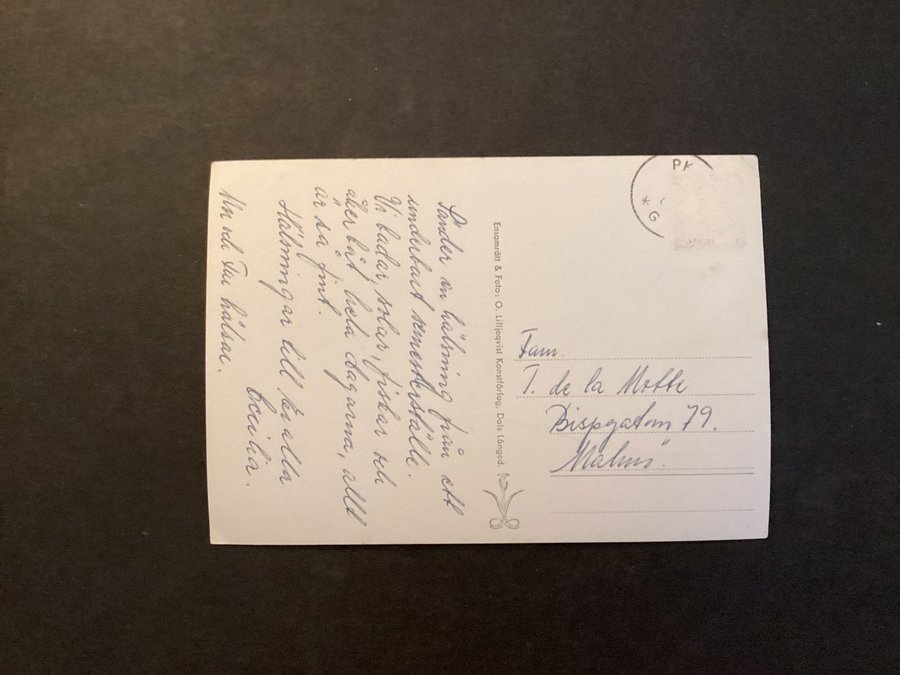 Sänder en hälsning från ett
underbart semesterställe.
Vi badar, solar, fiskar och
åker båt hela dagarna, allt
är så fint.
Hälsningar till Er alla
Cecilia.
Mor och Far hälsar.
Ensamrätt & Foto: O. Lilljeqvist Konstförlag, Dals Långed.
Fam.
T. de la Motte
Bispgatan 79.
Malmö.